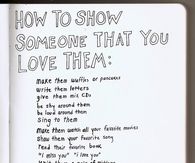 HOW TO SHOW
SOMEONE THAT YOU
LOVE THEM:
Make them waffles or pancakes
Write them letters
give them mix CDs
be shy around them
be loud around them
Sing to them
Make them watch all your favorite movies
Show them your favorite song
read their favorite book
"I miss you" "I love you"